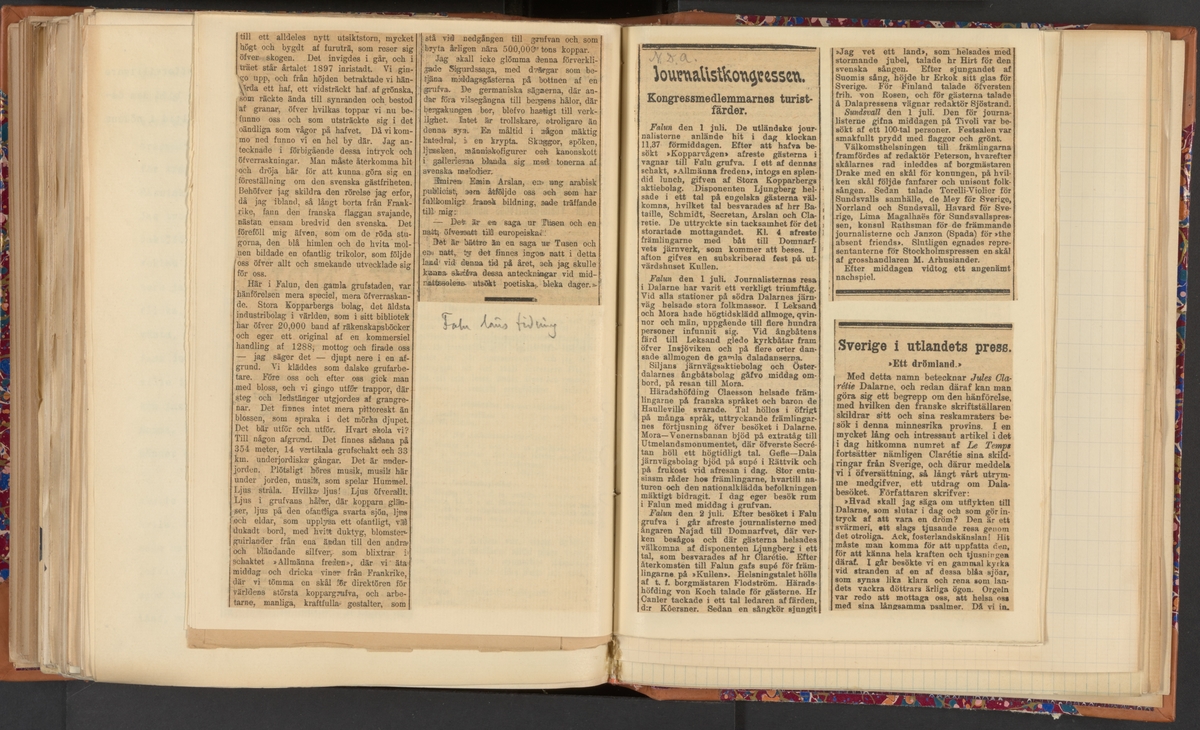 till ett alldeles nytt utsiktstorn, mycket
högt och bygdt af furuträ, som reser sig
öfver skogen. Det invigdes i går, och i
träet står årtalet 1897 inristadt. Vi gin-
go upp, och från höjden betraktade vi hän-
förda ett haf, ett vidsträckt haf af grönska,
som räckte ända till synranden och bestod
af granar, öfver hvilkas toppar vi nu be-
funno oss och som utsträckte sig i det
oändliga som vågor på hafvet. Då vi kom-
mo ned funno vi en hel by där. Jag an-
tecknade i förbigående dessa intryck och
öfverraskningar. Man måste återkomma hit
och dröja här för att kunna göra sig en
föreställning om den svenska gästfriheten.
Behöfver jag skildra den rörelse jag erfor,
då jag ibland, så långt borta från Frank-
rike, fann den franska flaggan svajande,
nästan ensam bredvid den svenska. Det
föreföll mig äfven, som om de röda stu-
gorna, den blå himlen och de hvita mol-
nen bildade en ofantlig trikolor, som följde
oss öfver allt och smekande utvecklade sig
för oss.
Här i Falun, den gamla grufstaden, var
hänförelsen mera speciel, mera öfverraskan-
de. Stora Kopparbergs bolag, det äldsta
industribolag i världen, som i sitt bibliotek
har öfver 20,000 band af räkenskapsböcker
och eger ett original af en kommersiel
handling af 1288, mottog och firade oss
— jag säger det — djupt nere i en af-
grund. Vi kläddes som dalske grufarbe-
tare. Före oss och efter oss gick man
med bloss, och vi gingo utför trappor, där
steg och ledstänger utgjordes af grangre-
nar. Det finnes intet mera pittoreskt än
blossen, som spraka i det mörka djupet.
Det bär utför och utför. Hvart skola vi?
Till någon afgrund. Det finnes sådana på
354 meter, 14 vertikala grufschakt och 33
km. underjordiska gångar. Det är under-
jorden. Plötsligt höres musik, musik här
under jorden, musik, som spelar Hummel.
Ljus stråla. Hvilka ljus! Ljus öfverallt.
Ljus i grufvans hålor, där kopparn glän-
ser, ljus på den ofantliga svarta sjön, ljus
och eldar, som upplysa ett ofantligt, väl
dukadt bord, med hvitt duktyg, blomster-
guirlander från ena ändan till den andra
och bländande silfver, som blixtrar i
schaktet »Allmänna freden», där vi äta
middag och dricka viner från Frankrike,
där vi tömma en skål för direktören för
världens största koppargrufva, och arbe-
tarne, manliga, kraftfulla gestalter, som
stå vid nedgången till grufvan och som
bryta årligen nära 500,000 tons koppar.
Jag skall icke glömma denna förverkli-
gade Sigurdssaga, med dvärgar som be-
tjäna middagsgästerna på bottnen af en
grufva. De germaniska sägnerna, där an-
dar föra vilsegångna till bergens hålor, där
bergakungen bor, blefvo hastigt till verk-
lighet. Intet är trollskare, otroligare än
denna syn. En måltid i någon mäktig
katedral, i en krypta. Skuggor, spöken,
ljussken, människofigurer och kanonskott
i gallerierna blanda sig med tonerna af
svenska melodier.
Emiren Emin Arslan, en ung arabisk
publicist, som åtföljde oss och som har
fullkomligt fransk bildning, sade träffande
till mig:
— Det är en saga ur Tusen och en
natt, öfversatt till europeiska.
Det är bättre än en saga ur Tusen och
en natt, ty det finnes ingen natt i detta
land vid denna tid på året, och jag skulle
kunna skrifva dessa anteckningar vid mid-
nattssolens utsökt poetiska, bleka dager.»
Falu läns tidning
N. D. A.
Journalistkongressen.
Kongressmedlemmarnes turist-
färder.
Falun den 1 juli. De utländske jour-
nalisterne anlände hit i dag klockan
11,37 förmiddagen. Efter att hafva be-
sökt »Kopparvågen» afreste gästerna i
vagnar till Falu grufva. I ett af dennas
schakt, »Allmänna freden», intogs en splen-
did lunch, gifven af Stora Kopparbergs
aktiebolag. Disponenten Ljungberg hel-
sade i ett tal på engelska gästerna väl-
komna, hvilket tal besvarades af hrr Ba-
taille, Schmidt, Secretan, Arslan och Cla-
retie. De uttryckte sin tacksamhet för det
storartade mottagandet. Kl. 4 afreste
främlingarne med båt till Domnarf-
vets järnverk, som kommer att beses. I
afton gifves en subskriberad fest på ut-
värdshuset Kullen.
Falun den 1 juli. Journalisternas resa
i Dalarne har varit ett verkligt triumftåg.
Vid alla stationer på södra Dalarnes järn-
väg helsade stora folkmassor. I Leksand
och Mora hade högtidsklädd allmoge, qvin-
nor och män, uppgående till flere hundra
personer infunnit sig. Vid ångbåtens
färd till Leksand glede kyrkbåtar fram
öfver Insjöviken och på flere orter dan-
sade allmogen de gamla daladanserna.
Siljans järnvägsaktiebolag och Öster-
dalarnes ångbåtsbolag gåfvo middag om-
bord, på resan till Mora.
Häradshöfding Claesson helsade främ-
lingarne på franska språket och baron de
Haulleville svarade. Tal höllos i öfrigt
på många språk, uttryckande främlingar-
nes förtjusning öfver besöket i Dalarne.
Mora—Venernsbanan bjöd på extratåg till
Utmelandsmonumentet, där öfverste Secré-
tan höll ett högtidligt tal. Gefle—Dala
järnvägsbolag bjöd på supé i Rättvik och
på frukost vid afresan i dag. Stor entu-
siasm råder hos främlingarne, hvartill na-
turen och den nationalklädda befolkningen
mäktigt bidragit. I dag eger besök rum
i Falun med middag i grufvan.
Falun den 2 juli. Efter besöket i Falu
grufva i går afreste journalisterne med
ångaren Najad till Domnarfvet, där ver-
ken besågos och där gästerna helsades
välkomna af disponenten Ljungberg i ett
tal, som besvarades af hr Clarétie. Efter
återkomsten till Falun gafs supé för främ-
lingarne på »Kullen». Helsningstalet hölls
af t. f. borgmästaren Flodström. Härads-
höfding von Koch talade för gästerne. Hr
Canler tackade i ett tal ledaren af färden,
d:r Köersner. Sedan en sångkör sjungit
»Jag vet ett land», som helsades med
stormande jubel, talade hr Hirt för den
svenska sången. Efter sjungandet af
Suomis sång, höjde hr Erkok sitt glas för
Sverige. För Finland talade öfversten
frih. von Rosen, och för gästerna talade
å Dalapressens vägnar redaktör Sjöstrand.
Sundsvall den 1 juli. Den för journa-
listerne gifna middagen på Tivoli var be-
sökt af ett 100-tal personer. Festsalen var
smakfullt prydd med flaggor och grönt.
Välkomsthelsningen till främlingarna
framfördes af redaktör Peterson, hvarefter
skålarnes rad inleddes af borgmästaren
Drake med en skål för konungen, på hvil-
ken skål följde fanfarer och unisont folk-
sången. Sedan talade Torelli-Viollet för
Sundsvalls samhälle, de Mey för Sverige,
Norrland och Sundsvall, Havard för Sve-
rige, Lima Magalhaës för Sundsvallspres-
sen, konsul Rathsman för de främmande
journalisterne och Janzon (Spada) för »the
absent friends». Slutligen egnades repre-
sentanterne för Stockholmspressen en skål
af grosshandlaren M. Arhusiander.
Efter middagen vidtog ett angenämt
nachspiel.
Sverige i utlandets press.
»Ett drömland.»
Med detta namn betecknar Jules Cla-
rétie Dalarne, och redan däraf kan man
göra sig ett begrepp om den hänförelse,
med hvilken den franske skriftställaren
skildrar sitt och sina reskamraters be-
sök i denna minnesrika provins. I en
mycket lång och intressant artikel i det
i dag hitkomna numret af Le Temps
fortsätter nämligen Clarétie sina skild-
ringar från Sverige, och därur meddela
vi i öfversättning, så långt vårt utrym-
me medgifver, ett utdrag om Dala-
besöket. Författaren skrifver:
»Hvad skall jag säga om utflykten till
Dalarne, som slutar i dag och som gör in-
tryck af att vara en dröm? Den är ett
svärmeri, ett slags tjusande resa genom
det otroliga. Ack, fosterlandskänslan! Hit
måste man komma för att uppfatta den,
för att känna hela kraften och tjusningen
däraf. I går besökte vi en gammal kyrka
vid stranden af en af dessa blåa sjöar,
som synas lika klara och rena som lan-
dets vackra döttrars ärliga ögon. Orgeln
var redo att mottaga oss, att helsa oss
med sina långsamma psalmer. Då vi in,